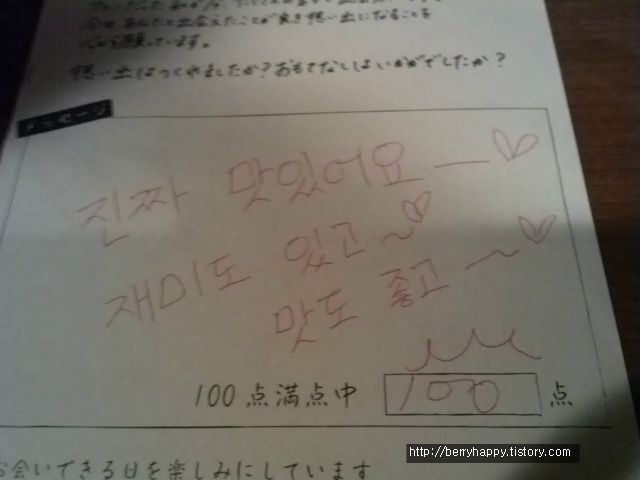 今日あなたと出会えたことが良き想い出になることを
心から願っています。
想い出はつくれましたか?おもてなしはいかがでしたか?
メッセージ
진짜 맛있어요 — ♡
재미도 있고~♡
맛도 좋고 ~♡
100点満点中 100 点
お会いできる日を楽しみにしています
http://berryhappy.tistory.com